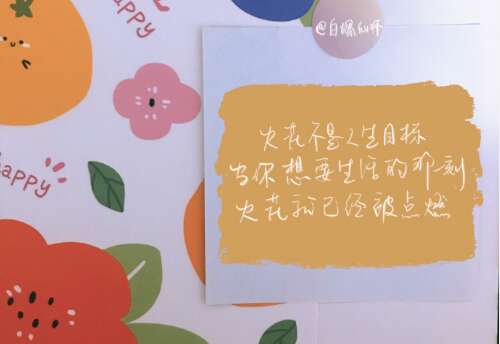 happy
火花不是人生目标
当你想要生活的那刻
happy
火花就已经被点燃